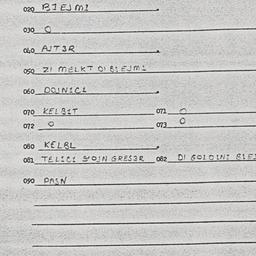 020 BIEJMI
030 O
040 AJT3R
050 ZI MELKT DI BIEJMI
060 DOJNICI
070 KELBIT 071 O
072 O 073 O
080 KELBL
081 TELICI 082 DI GOLDINI BIEJ
090 PAJN